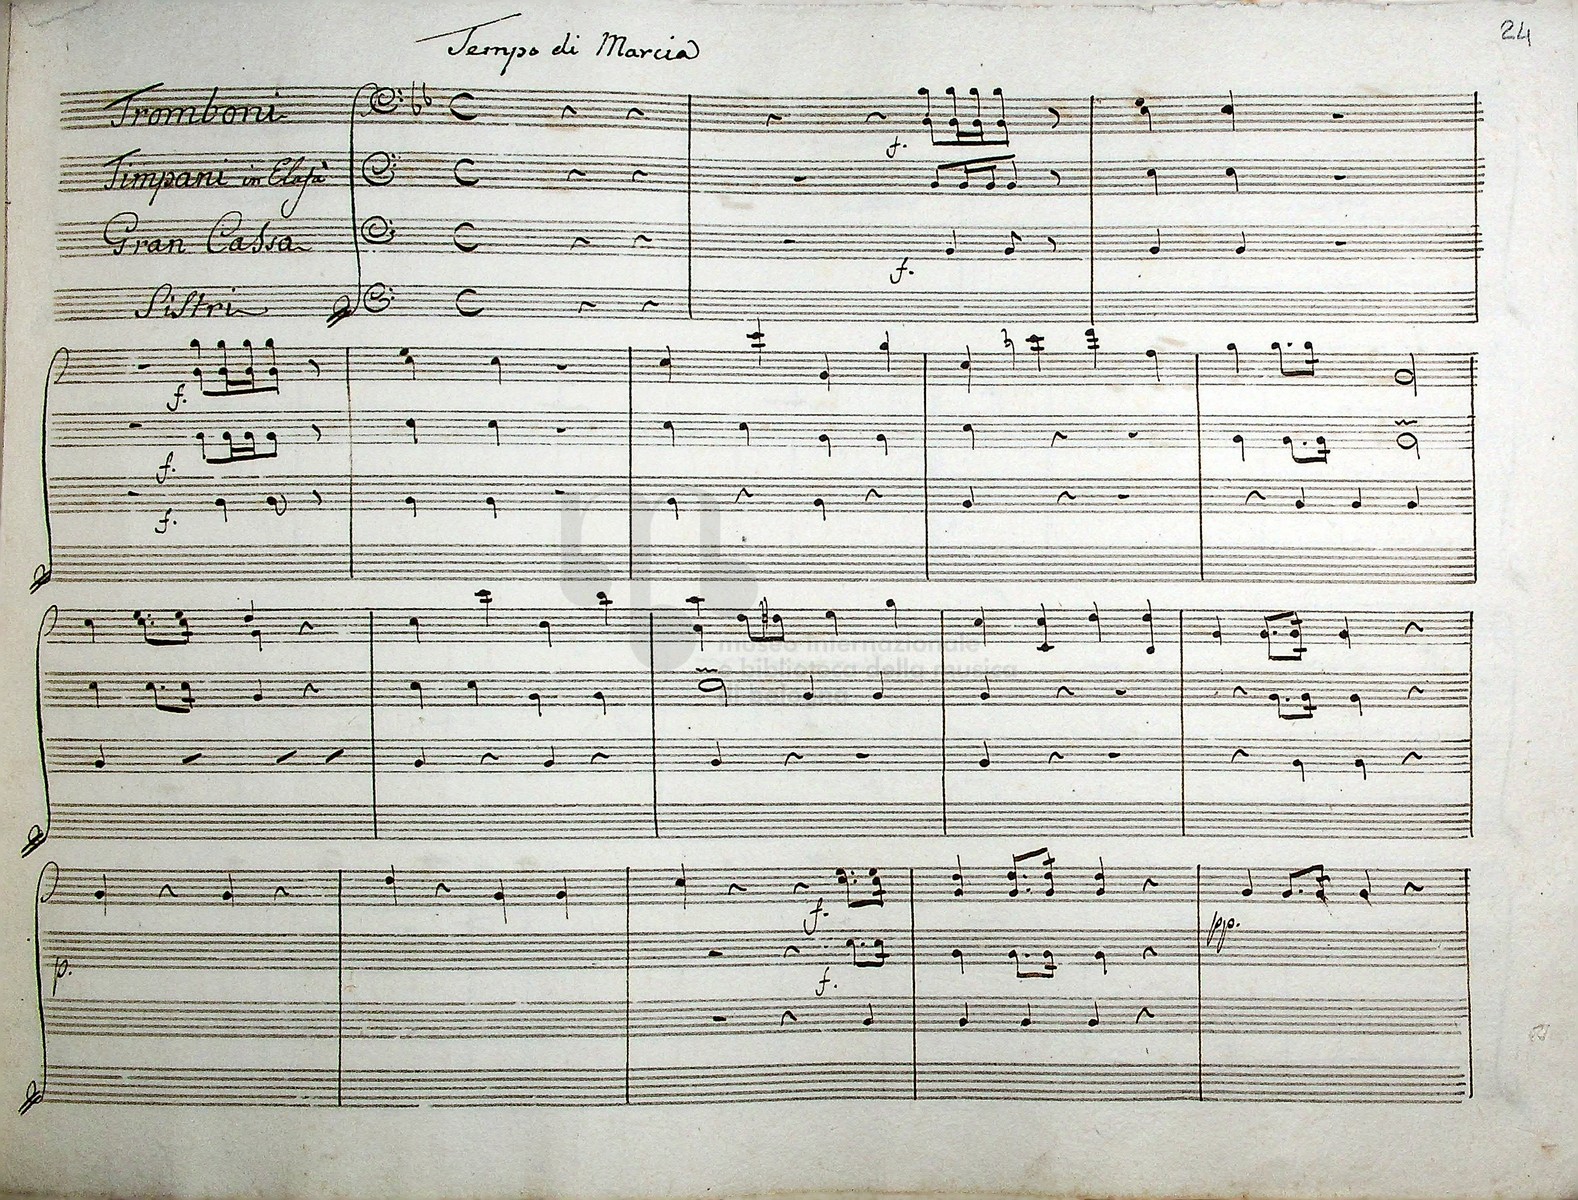 24
Tempo di Marcia
Tromboni
Timpani in Elafà
Gran Cassa
Sistri
f.
f.
f.
f.
f.
museo internazionale
e biblioteca della musica
di bologna
p.
f.
f.
pp.